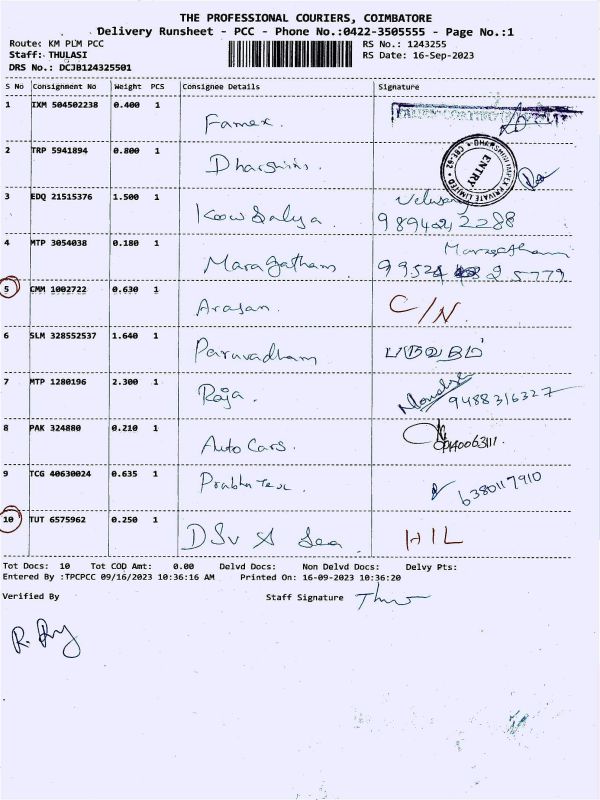 THE PROFESSIONAL COURIERS, COIMBATORE
Delivery Runsheet - PCC - Phone No.:0422-3505555 - Page No.:1
Route: KM PLM PCC
RS No.: 1243255
Staff: THULASI
RS Date: 16-Sep-2023
DRS No.: DCJB124325501
S No Consignment No Weight PCS Consignee Details Signature
1 IXM 504502238 0.400 1 Famex.
2 TRP 5941894 0.800 1 Dharshini.
BHARSHINI IMPEX PRIVATE LIMITED * CBE-62 * ENTRY
3 EDQ 21515376 1.500 1 Kowsalya.
4 MTP 3054038 0.180 1 Maragatham.
5 CMM 1002722 0.630 1 Arasan. C/N.
6 SLM 328552537 1.640 1 Paruvadham
7 MTP 1280196 2.300 1 Raja. 9488316327
8 PAK 324880 0.210 1 Auto Cars.
9 TCG 40630024 0.635 1 Prabhu Tex. 6380117910
10 TUT 6575962 0.250 1 DSV A Sea. HIL
Tot Docs: 10 Tot COD Amt: 0.00 Delvd Docs: Non Delvd Docs: Delvy Pts:
Entered By :TPCPCC 09/16/2023 10:36:16 AM Printed On: 16-09-2023 10:36:20
Verified By Staff Signature